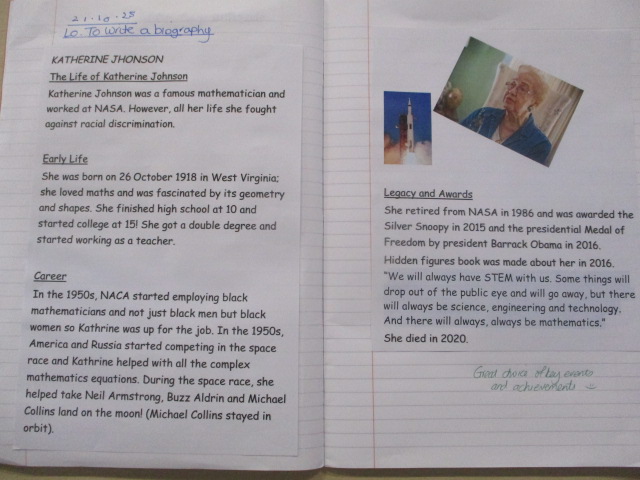 21.10.25
Lo. To write a biography
KATHERINE JHONSON
The Life of Katherine Johnson
Katherine Johnson was a famous mathematician and
worked at NASA. However, all her life she fought
against racial discrimination.
Early Life
She was born on 26 October 1918 in West Virginia;
she loved maths and was fascinated by its geometry
and shapes. She finished high school at 10 and
started college at 15! She got a double degree and
started working as a teacher.
Career
In the 1950s, NACA started employing black
mathematicians and not just black men but black
women so Kathrine was up for the job. In the 1950s,
America and Russia started competing in the space
race and Kathrine helped with all the complex
mathematics equations. During the space race, she
helped take Neil Armstrong, Buzz Aldrin and Michael
Collins land on the moon! (Michael Collins stayed in
orbit).
Legacy and Awards
She retired from NASA in 1986 and was awarded the
Silver Snoopy in 2015 and the presidential Medal of
Freedom by president Barrack Obama in 2016.
Hidden figures book was made about her in 2016.
"We will always have STEM with us. Some things will
drop out of the public eye and will go away, but there
will always be science, engineering and technology.
And there will always, always be mathematics."
She died in 2020.
Great choice of key events
and achievements